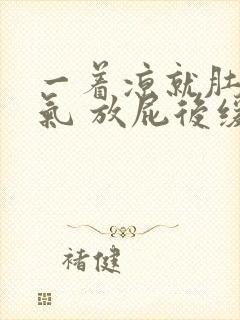 一着凉就肚
氣 放屁後緩
褚健